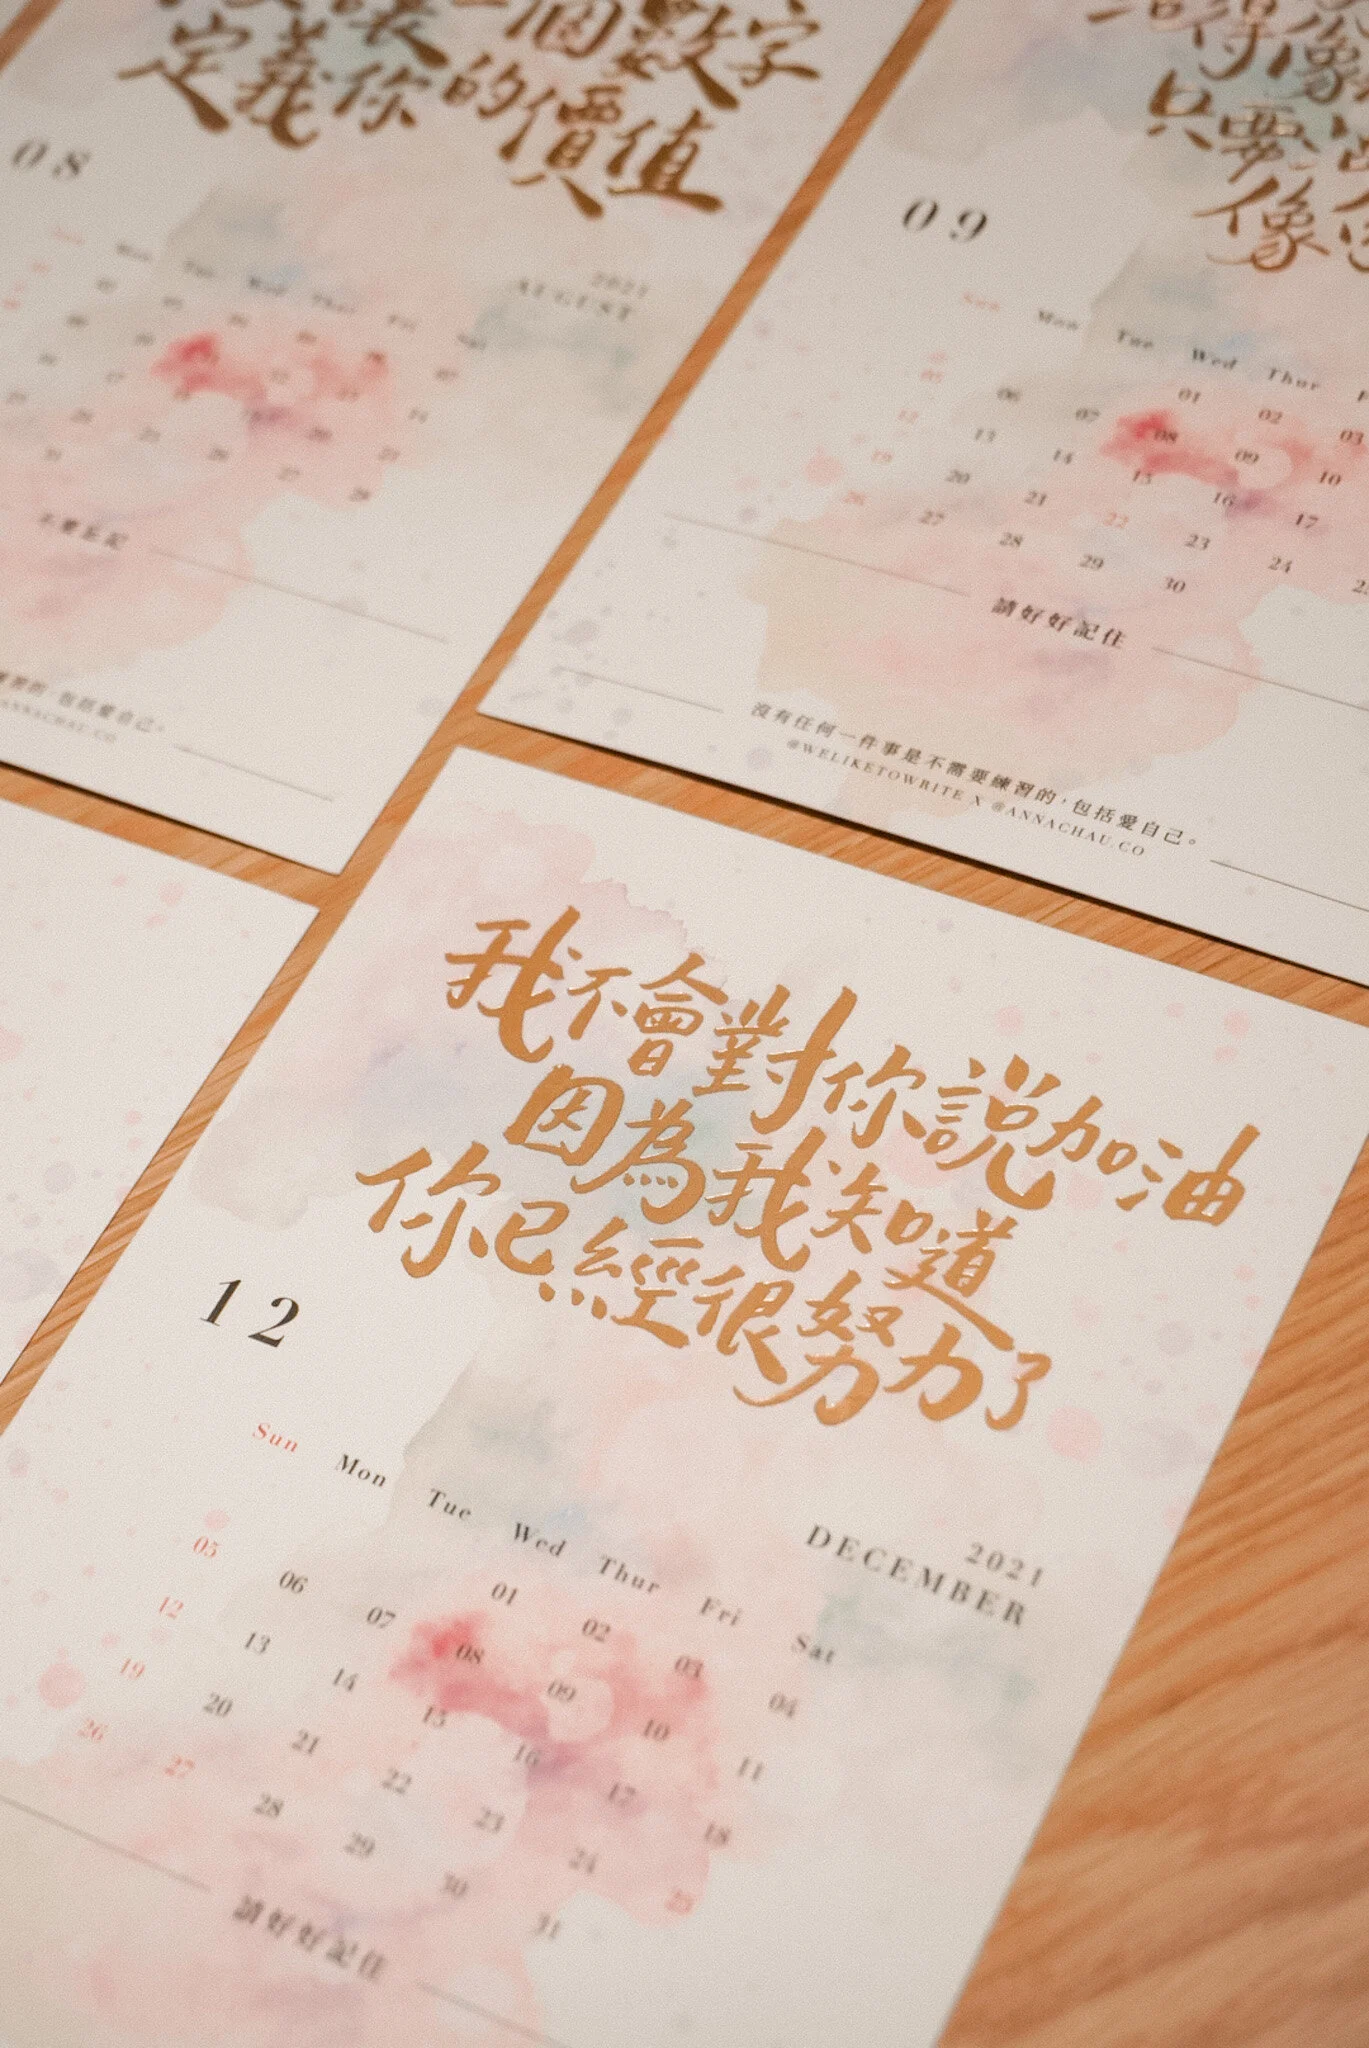 個數字
定義你的價值
08
2021
AUGUST
Mon Tue Wed Thur Fri Sat
不要忘記
包括愛自己。
ANNACHAU.CO
只要
像
09
Sun Mon Tue Wed Thur
01 02 03
05 06 07 08 09 10
12 13 14 15 16 17
19 20 21 22 23 24
26 27 28 29 30
請好好記住
沒有任何一件事是不需要練習的，包括愛自己。
@WELIKETOWRITE X @ANNACHAU.CO
我不會對你説加油
因為我知道
你已經很努力了
12
2021
DECEMBER
Sun Mon Tue Wed Thur Fri Sat
01 02 03 04
05 06 07 08 09 10 11
12 13 14 15 16 17 18
19 20 21 22 23 24 25
26 27 28 29 30 31
請好好記住